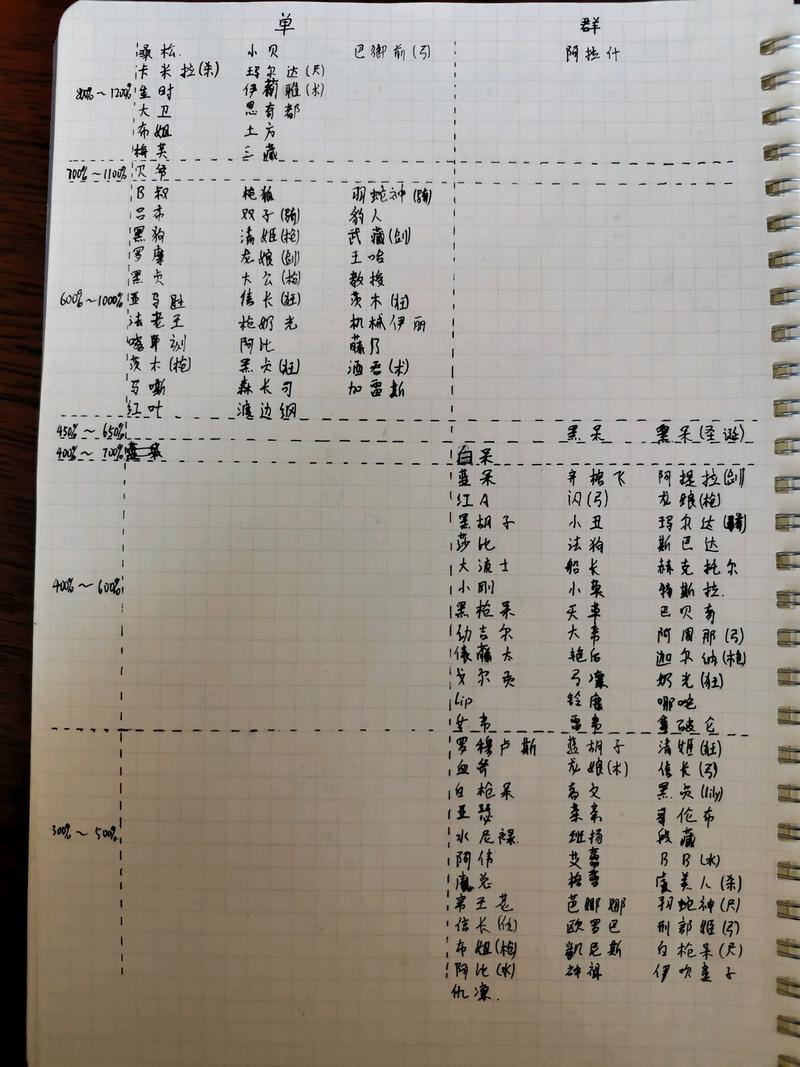 单 群
小贝 巴御前(弓) 阿拉什
卡米拉(杀) 玛尔达(尺)
800%~1200% 金时 伊莉雅(术)
大卫 恩奇都
布姐 土方
梅芙 三藏
700%~1100% 贝爷
B叔 枪狐 羽蛇神(骑)
吕布 双子(骑) 豹人
黑狗 清姬(枪) 武藏(剑)
罗摩 龙娘(剑) 王哈
黑贞 大公(枪) 教授
600%~1000% 亚马胜 信长(狂) 茨木(狂)
法老王 枪奶光 机械伊丽
喀耳刻 阿比 藤乃
茨木(枪) 黑贞(狂) 酒吞(术)
马嘶 森长可 加雷斯
红叶 渡边纲
450%~650% 黑呆 黑呆(圣诞)
400%~700% 白呆
蓝呆 齐格飞 阿提拉(剑)
红A 闪(弓) 龙娘(枪)
黑胡子 小丑 玛尔达(骑)
莎比 法狗 斯巴达
大波士 船长 赫克托尔
400%~600% 小刚 小莫 特斯拉
黑枪呆 天草 巴贝奇
幼吉尔 大韦 阿周那(弓)
俵藤太 艳后 迦尔纳(枪)
戈尔贡 弓凛 奶光(狂)
lip 铃鹿 哪吒
女帝 雷帝 拿破仑
罗穆卢斯 蓝胡子 清姬(狂)
血斧 龙娘(术) 信长(弓)
白枪呆 高文 黑贞(lily)
亚瑟 柔柔 哥伦布
300%~500% 水尼禄 班扬 段藏
阿伟 艾蕾 BB(水)
虞美人(杀)
帝王花 芭娜娜 羽蛇神(尺)
信长(仇) 欧罗巴 刑部姬(弓)
布姐(枪) 凯尼斯 白枪呆(尺)
阿比(水) 神祖 伊吹童子
仇凛.